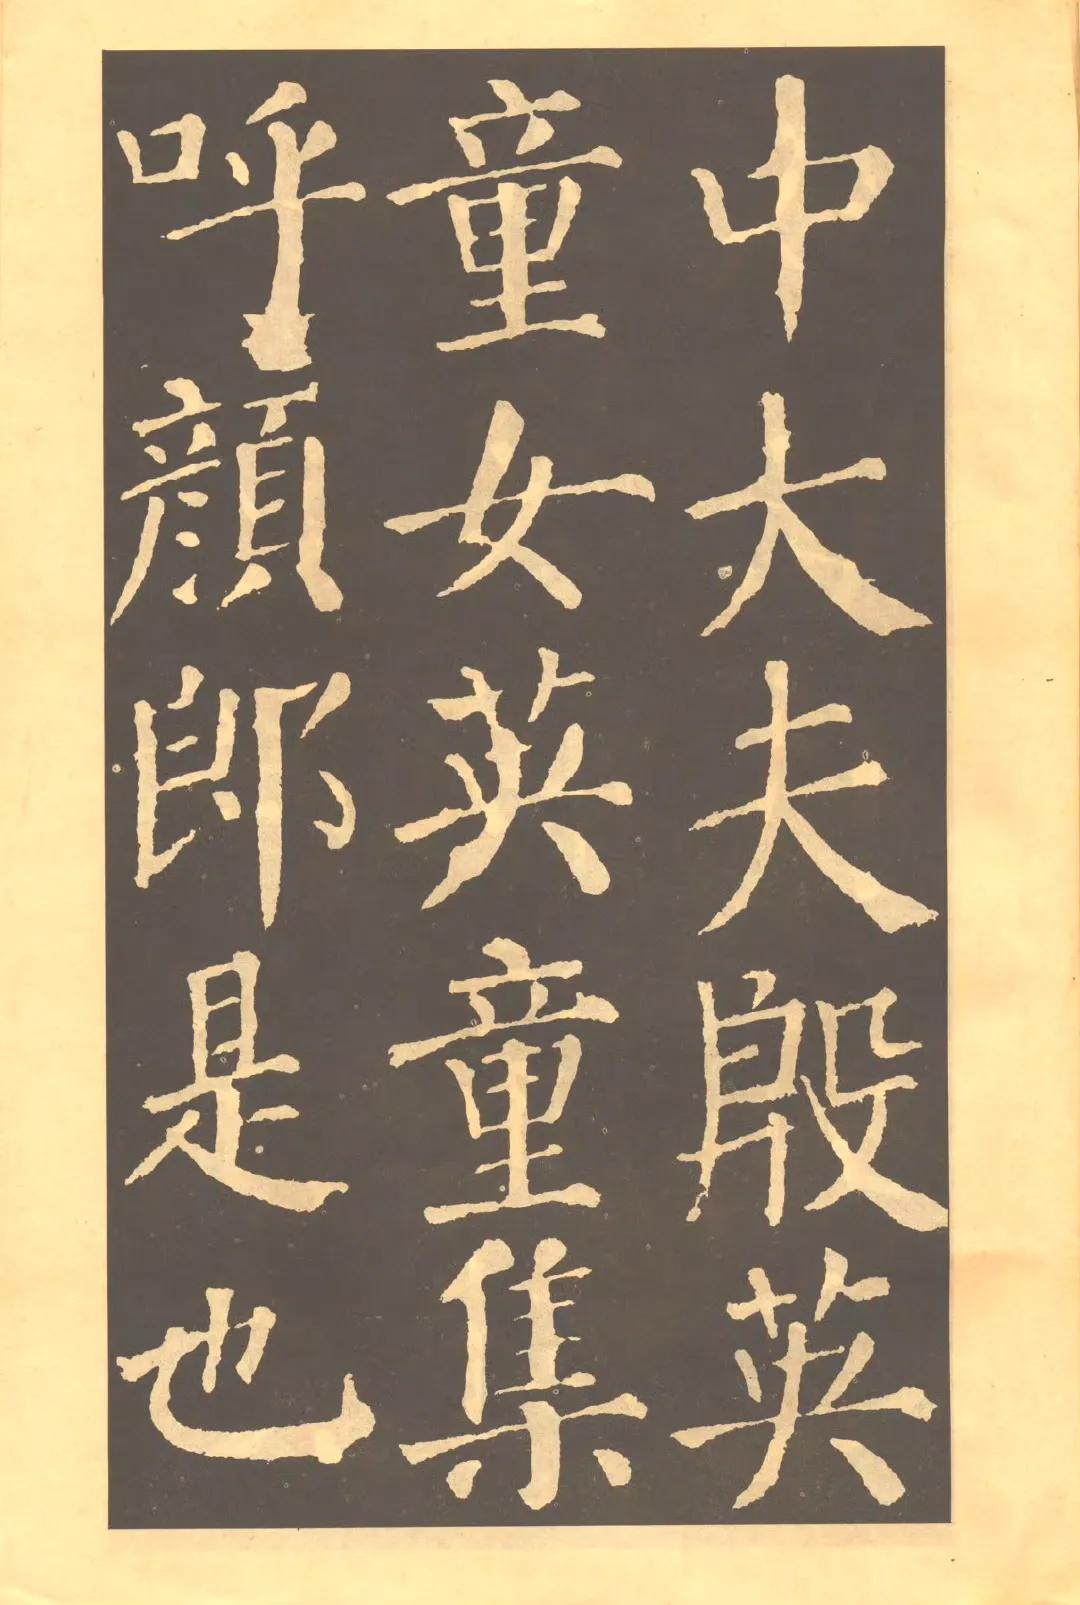 中大夫殷英
童女英童集
呼顔郎是也